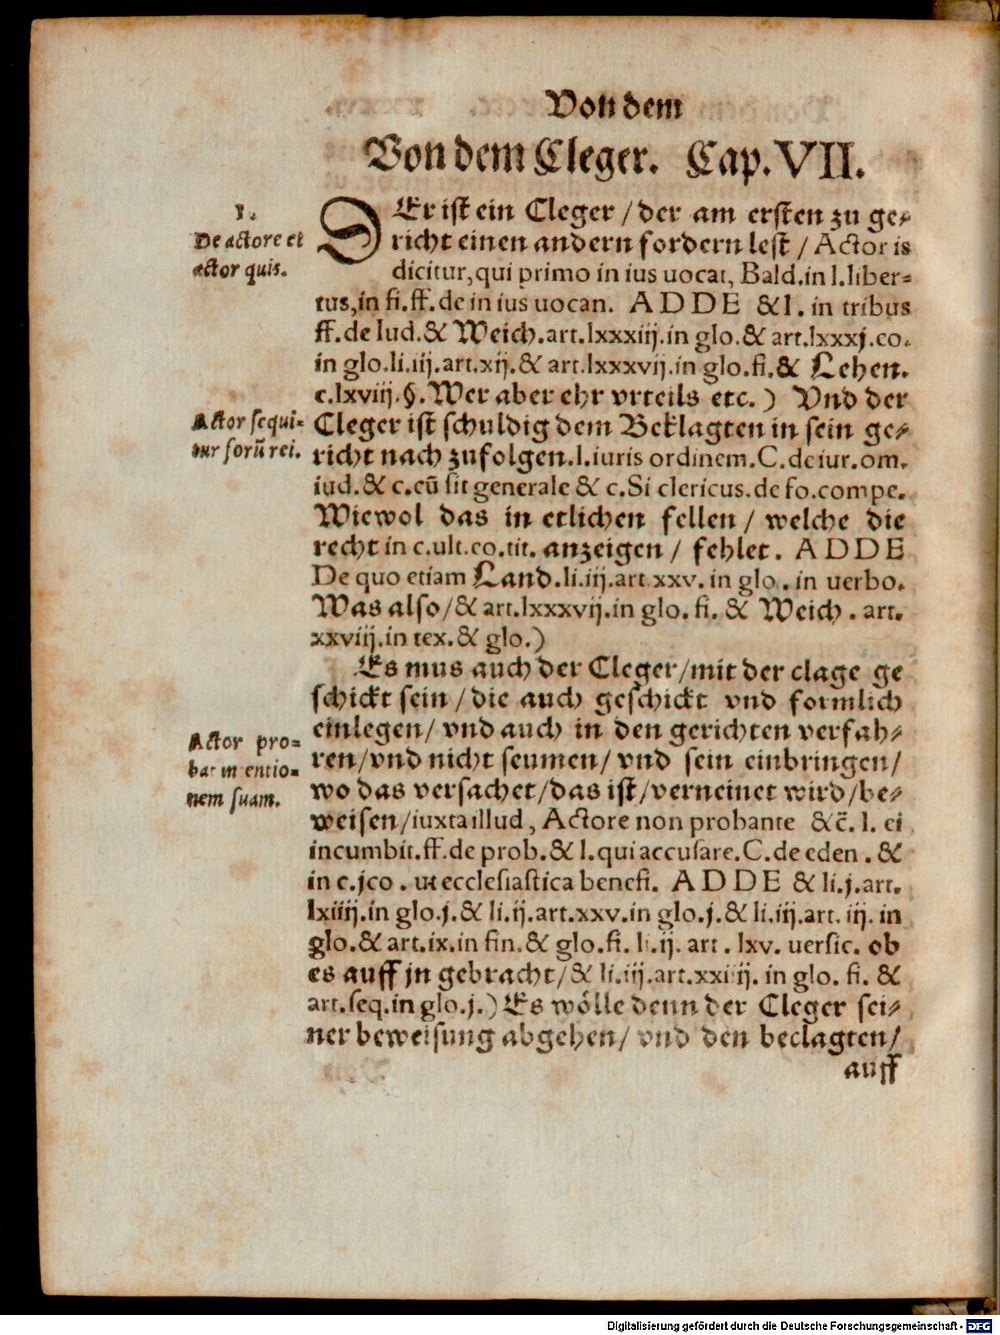 Von dem
Von dem Cleger. Cap. VII.
1.
De actore et
actor quis.
DEr ist ein Cleger / der am ersten zu ge⸗
richt einen andern fordern lest / Actor is
dicitur, qui primo in ius uocat, Bald. in l. liber=
tus, in fi. ff. de in ius uocan. ADDE & l. in tribus
ff. de Iud. & Weich. art. lxxxiij. in glo. & art. lxxxj. co.
in glo. li. iij. art. xij. & art. lxxxvij. in glo. fi. & Lehen.
c. lxviij. §. Wer aber ehr vrteils etc.) Vnd der
Actor sequi=
tur forū rei.
Cleger ist schuldig dem Beklagten in sein ge⸗
richt nach zufolgen. l. iuris ordinem. C. de iur. om.
iud. & c. cū sit generale & c. Si clericus. de fo. compe.
Wiewol das in etlichen fellen / welche die
recht in c. ult. co. tit. anzeigen / fehlet. ADDE
De quo etiam Land. li. iij. art. xxv. in glo. in uerbo.
Was also / & art. lxxxvij. in glo. fi. & Weich. art.
xxviij. in tex. & glo.)
Es mus auch der Cleger / mit der clage ge
schickt sein / die auch geschickt vnd formlich
Actor pro=
bat in entio=
nem suam.
einlegen / vnd auch in den gerichten verfah⸗
ren / vnd nicht seumen / vnd sein einbringen /
wo das versachet / das ist / verneinet wird / be⸗
weisen / iuxta illud, Actore non probante &c̄. l. ei
incumbit. ff. de prob. & l. qui accusare. C. de eden. &
in c. jco. ut ecclesiastica benefi. ADDE & li. j. art.
lxiiij. in glo. j. & li. ij. art. xxv. in glo. j. & li. iij. art. iij. in
glo. & art. ix. in fin. & glo. fi. li. ij. art. lxv. uersic. ob
es auff jn gebracht / & li. iij. art. xxiiij. in glo. fi. &
art. seq. in glo. j.) Es wölle denn der Cleger sei⸗
ner beweisung abgehen / vnd den beclagten /
auff
Digitalisierung gefördert durch die Deutsche Forschungsgemeinschaft - DFG